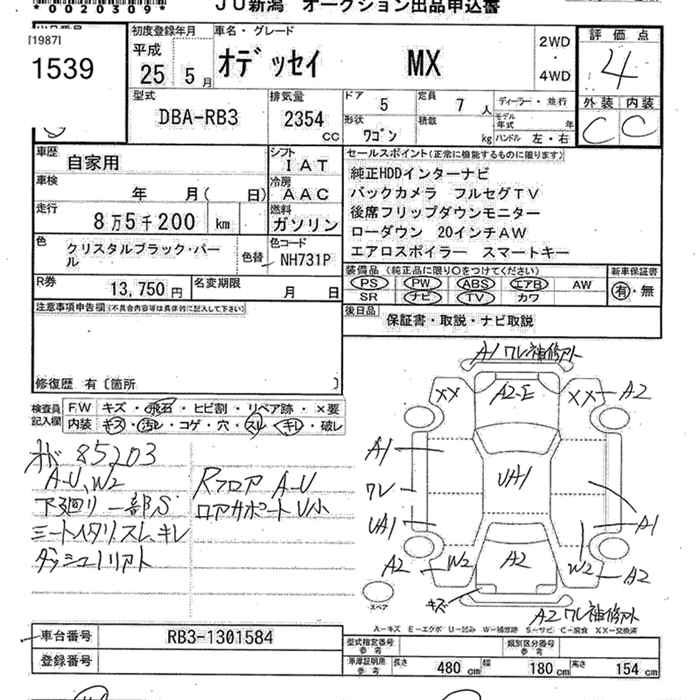 *0020309*
JU新潟 オークション出品申込書
[1987]
1539
初度登録年月
平成
25 5月
車名・グレード
オデッセイ MX
2WD
・
4WD
評価点
4
外装 内装
C C
型式
DBA-RB3
排気量
2354
CC
ドア 5
形状
ワゴン
定員 7 人
積載 kg
ディーラー・並行
モデル年式 年
ハンドル 左・右
車歴 自家用
シフト IAT
車検 年 月( 日)
冷房 AAC
走行 8万5千200 km
燃料 ガソリン
色
クリスタルブラック・パール
色替
色コード
NH731P
R券 13,750円
名変期限 月 日
セールスポイント(正常に機能するものに限ります)
純正HDDインターナビ
バックカメラ フルセグTV
後席フリップダウンモニター
ローダウン 20インチAW
エアロスポイラー スマートキー
装備品(純正品に限り○をつけてください)
PS PW ABS エアB AW
SR ナビ TV カワ
新車保証書
有・無
後日品 保証書・取説・ナビ取説
注意事項申告欄(不具合内容等は具体的に記入して下さい)
修復歴 有〔箇所 〕
検査員記入欄
F.W キズ・飛石・ヒビ割・リペア跡・×要
内装 キズ・汚レ・コゲ・穴・スレ・キレ・破レ
85203
A-U、W2
下廻り一部S
シートヘタリ、スレ、キレ
Rフロア A-U
ロアサポートU小
A1 ワレ補修アト
XX
A2-E
XX
A2
A1
ワレ
UA1
UA1
A1
A2
W2
A2
W2
A2
キズ
スペア
A2 ワレ補修アト
A-キズ E-エクボ U-凹み W-補修跡 S-サビ C-腐食 XX-交換済
車台番号 RB3-1301584
登録番号
型式指定番号
参考
類別区分番号
参考
車庫証明席
参考
長さ 480 cm 幅 180 cm 高さ 154 cm